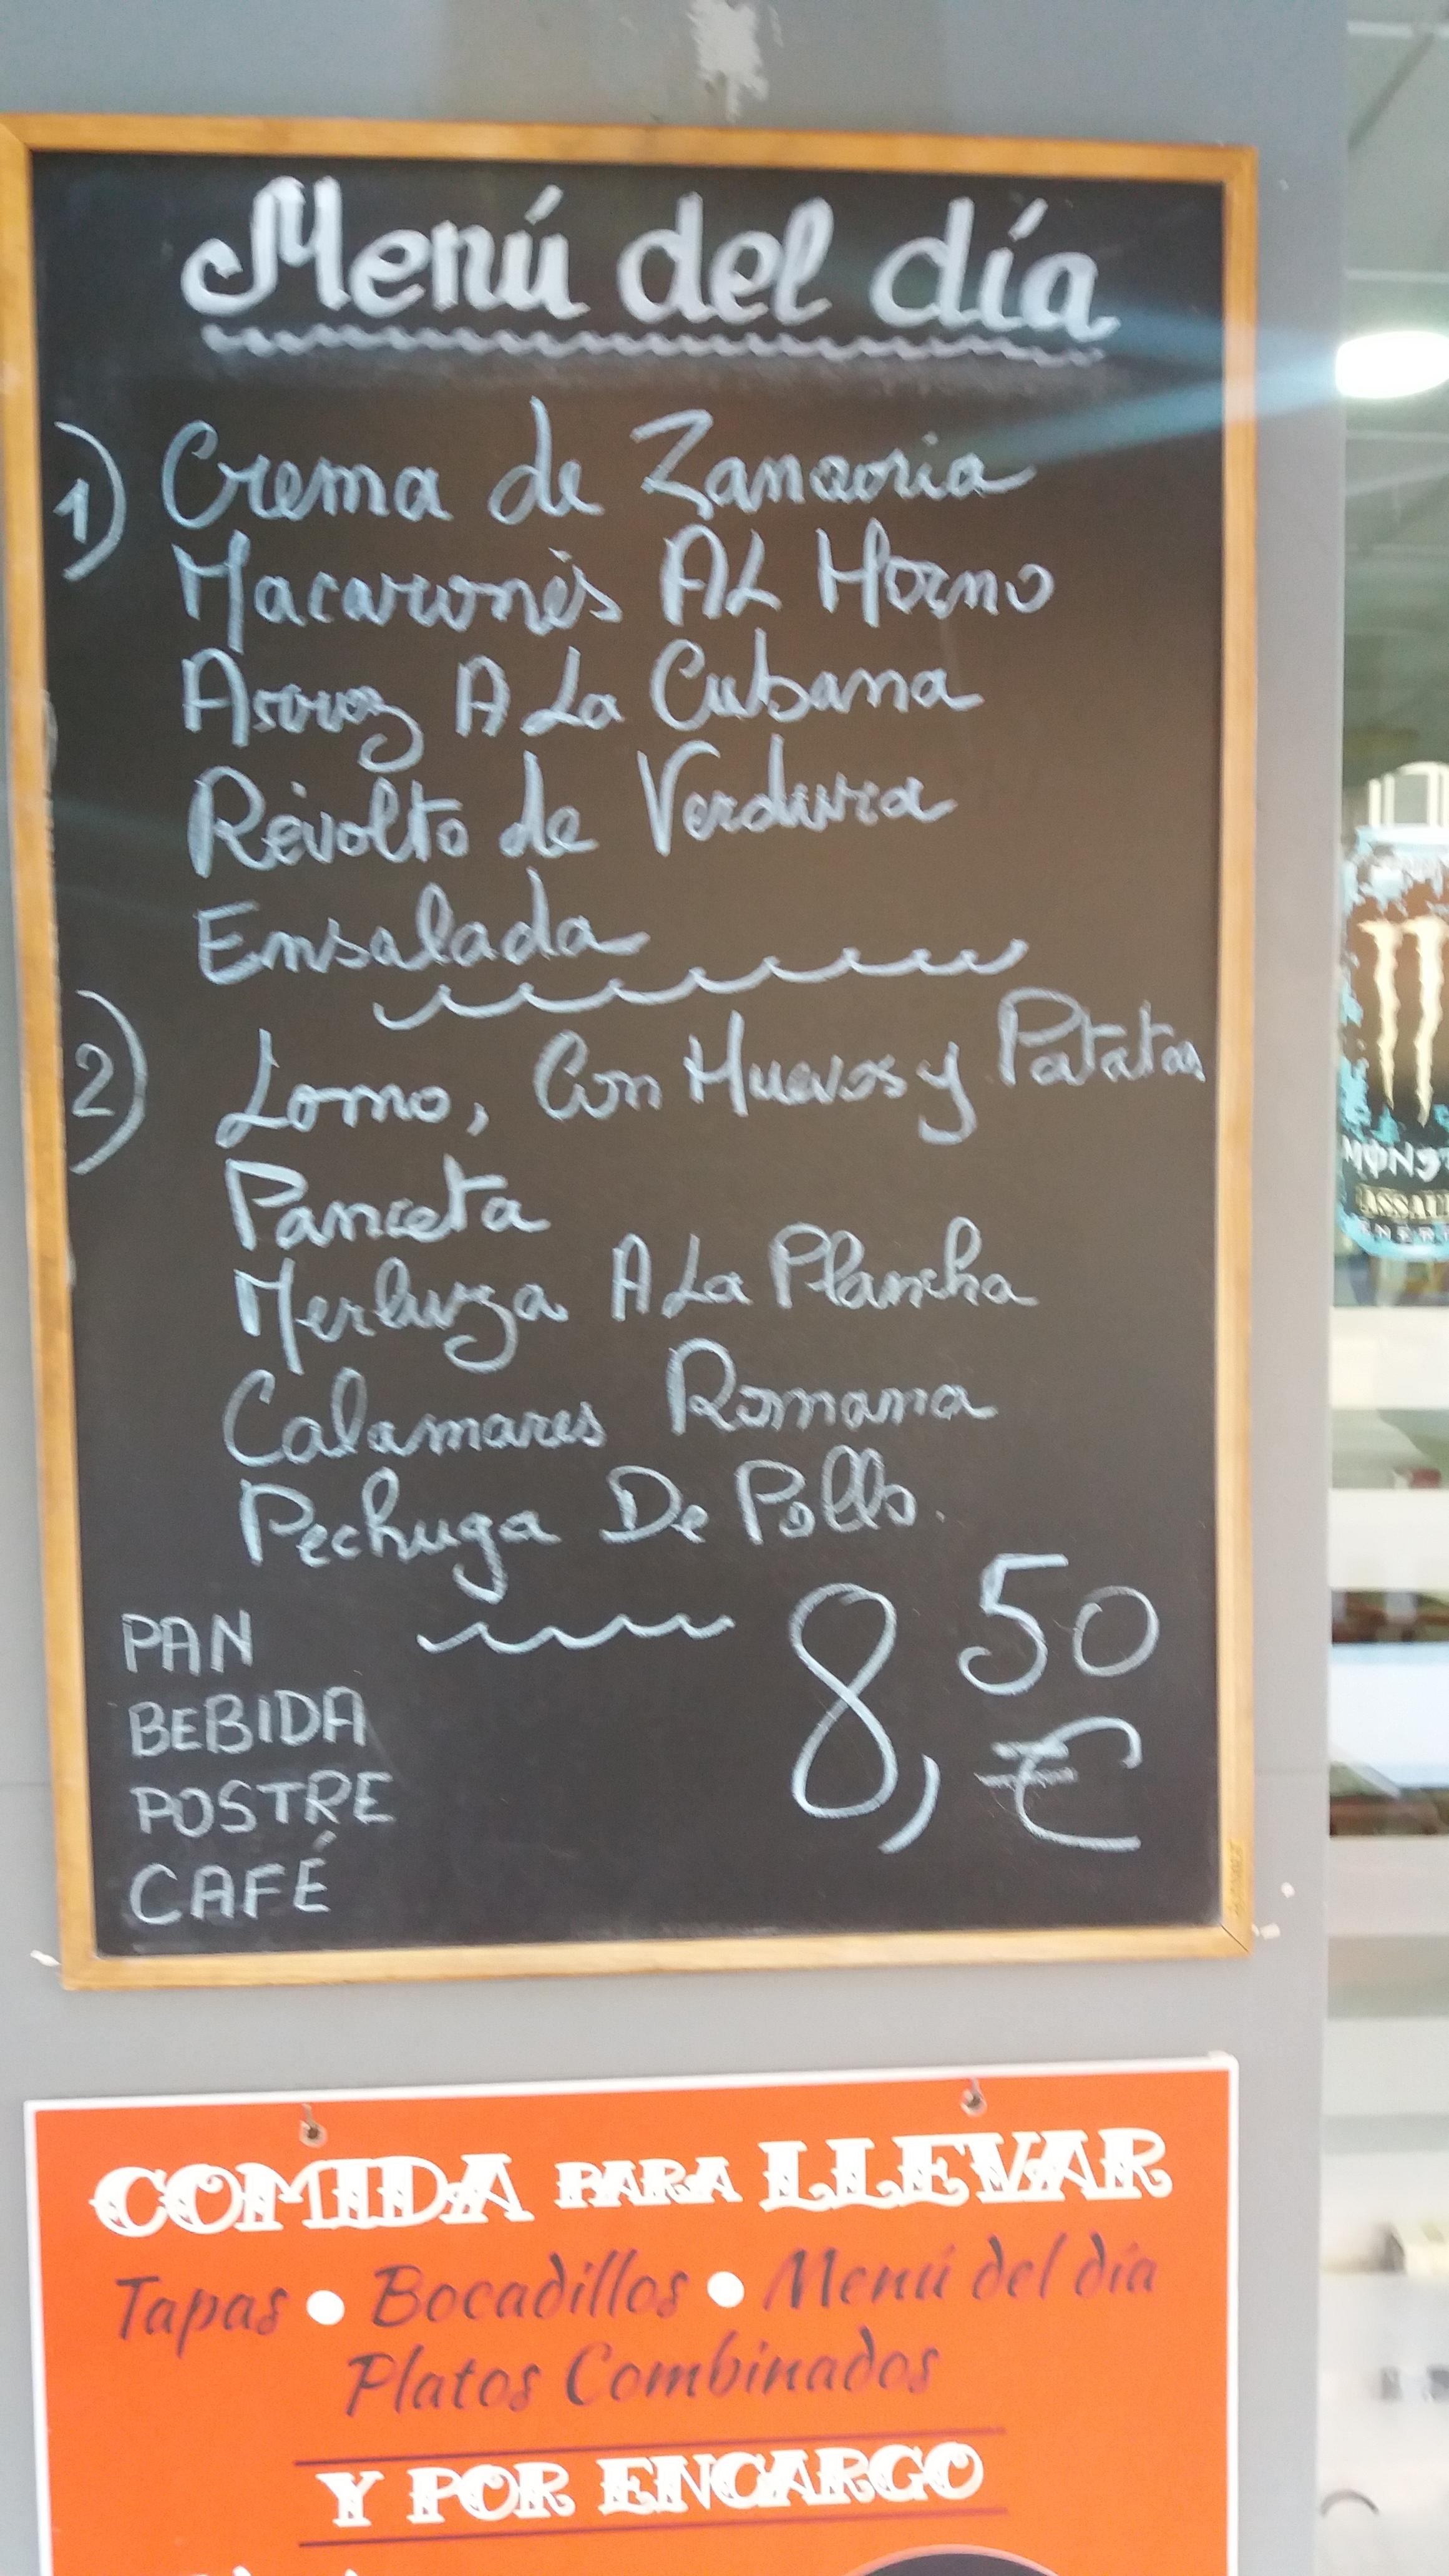 Menú del día
1) Crema de Zanaoria
Macaronès AL Horno
Arroz A La Cubana
Revolto de Verdura
Ensalada
2) Lomo, Con Huevos y Patatas
Panceta
Merluza A La Plancha
Calamares Romana
Pechuga De Pollo.
PAN
BEBIDA
POSTRE
CAFÉ
8,50 €
COMIDA PARA LLEVAR
Tapas • Bocadillos • Menú del día
Platos Combinados
Y POR ENCARGO